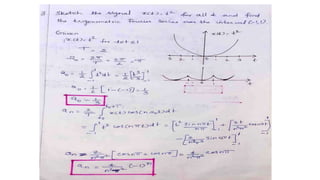 Sketch the signal x(t) = t² for all t and find
the trigonometric Fourier Series over the interval (-1,1).
x(t) = t²
Given
x(t) = t² for -1≤t≤1
T = 2
ω₀ = 2π/T = 2π/2 = π
a₀ = 1/2 ∫ t² dt = 1/2 [t³/3]
a₀ = 1/6 [1-(-1)] = 1/3
a₀ = 1/3
aₙ = 2/T ∫ x(t) cos(nω₀t) dt
= ∫ t² cos(nπt) dt = [t² sin nπt / nπ]
aₙ = 2/n²π² [cos nπ + cos nπ] = 4/n²π² cos nπ
aₙ = 4/n²π² (-1)ⁿ